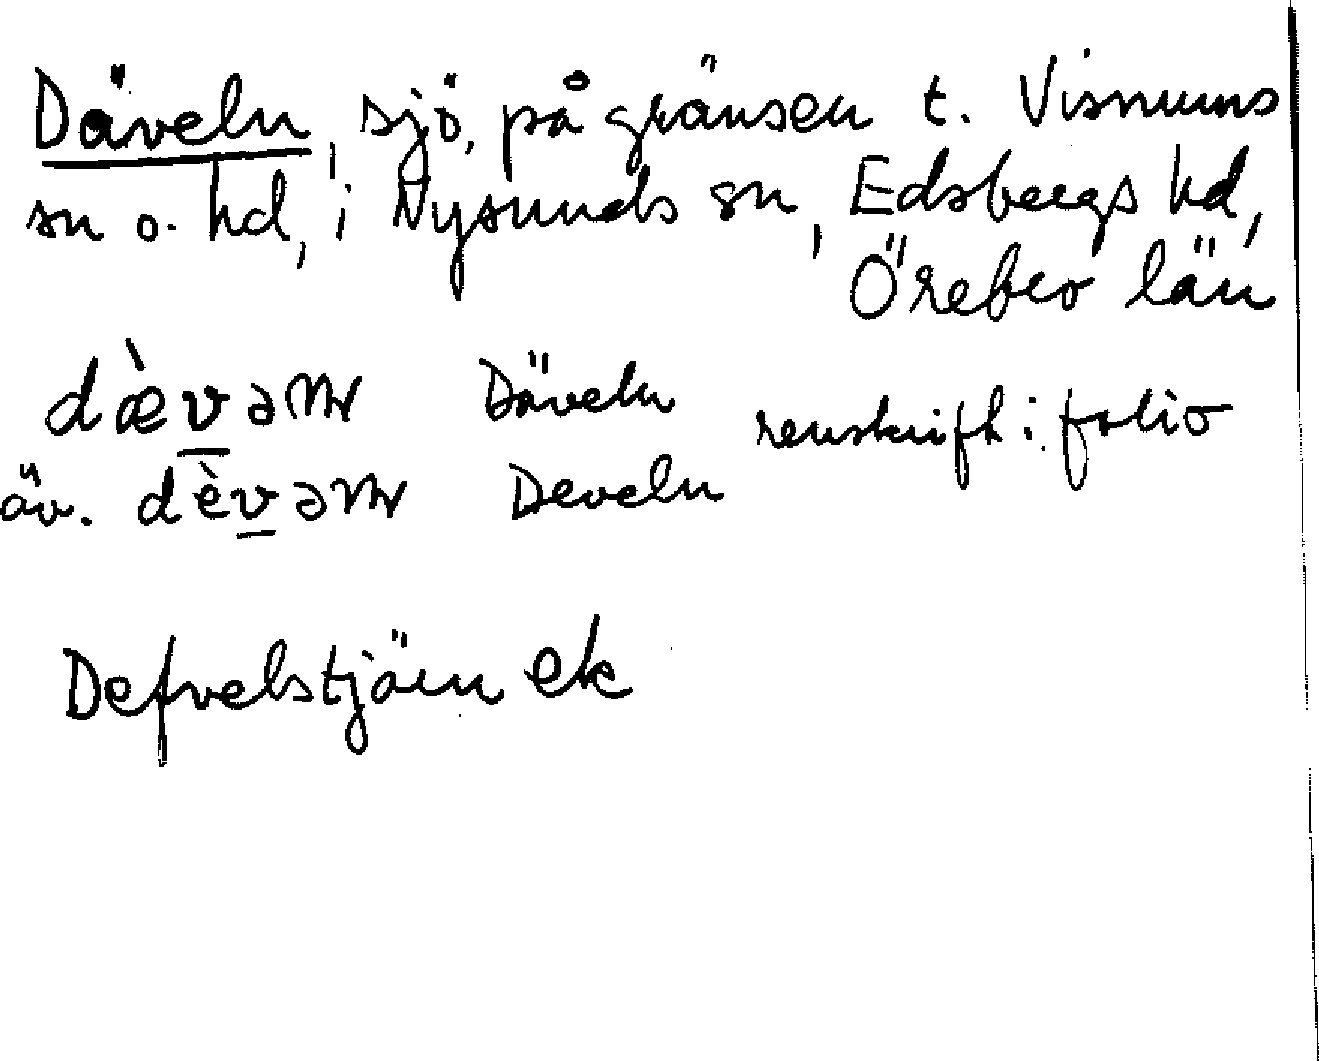 Däveln, sjö, på gränsen t. Visnums
sn o. hd, i Nysunds sn, Edsbergs hd,
Örebro län
Däveln renskrift i folio
äv. Develn
Defvelstjärn ek